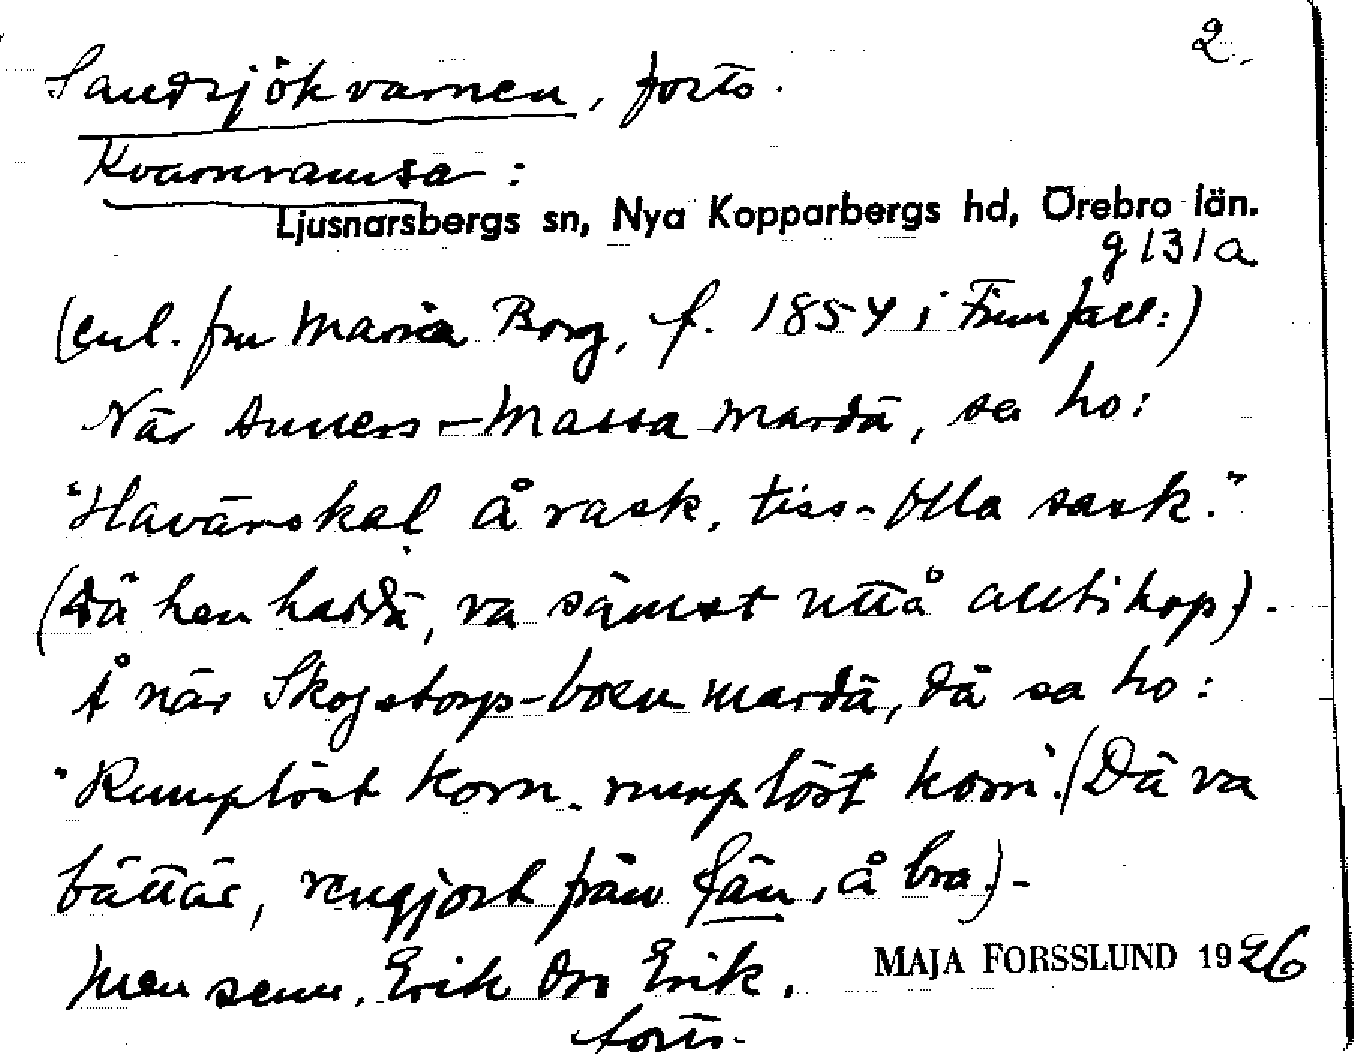 2.
Sandsjökvarnen, forts.
Kvarnramsa:
Ljusnarsbergs sn, Nya Kopparbergs hd, Örebro län.
g 131a
(enl. fru Maria Borg, f. 1854 i Finnfall:)
När Anners-Massa mardä, sa ho:
"Havärskal å rask, tiss-Olla sask."
(Dä hen haddä, va sämst uttå alltihop). -
Å när Skogstorp-boen mardä, dä sa ho:
"Rumplöst korn, rumplöst korn". (Dä va
bättär, rengjort från fän, å bra.) -
Men senn, Erik Ors Erik,
forts.
MAJA FORSSLUND 1926